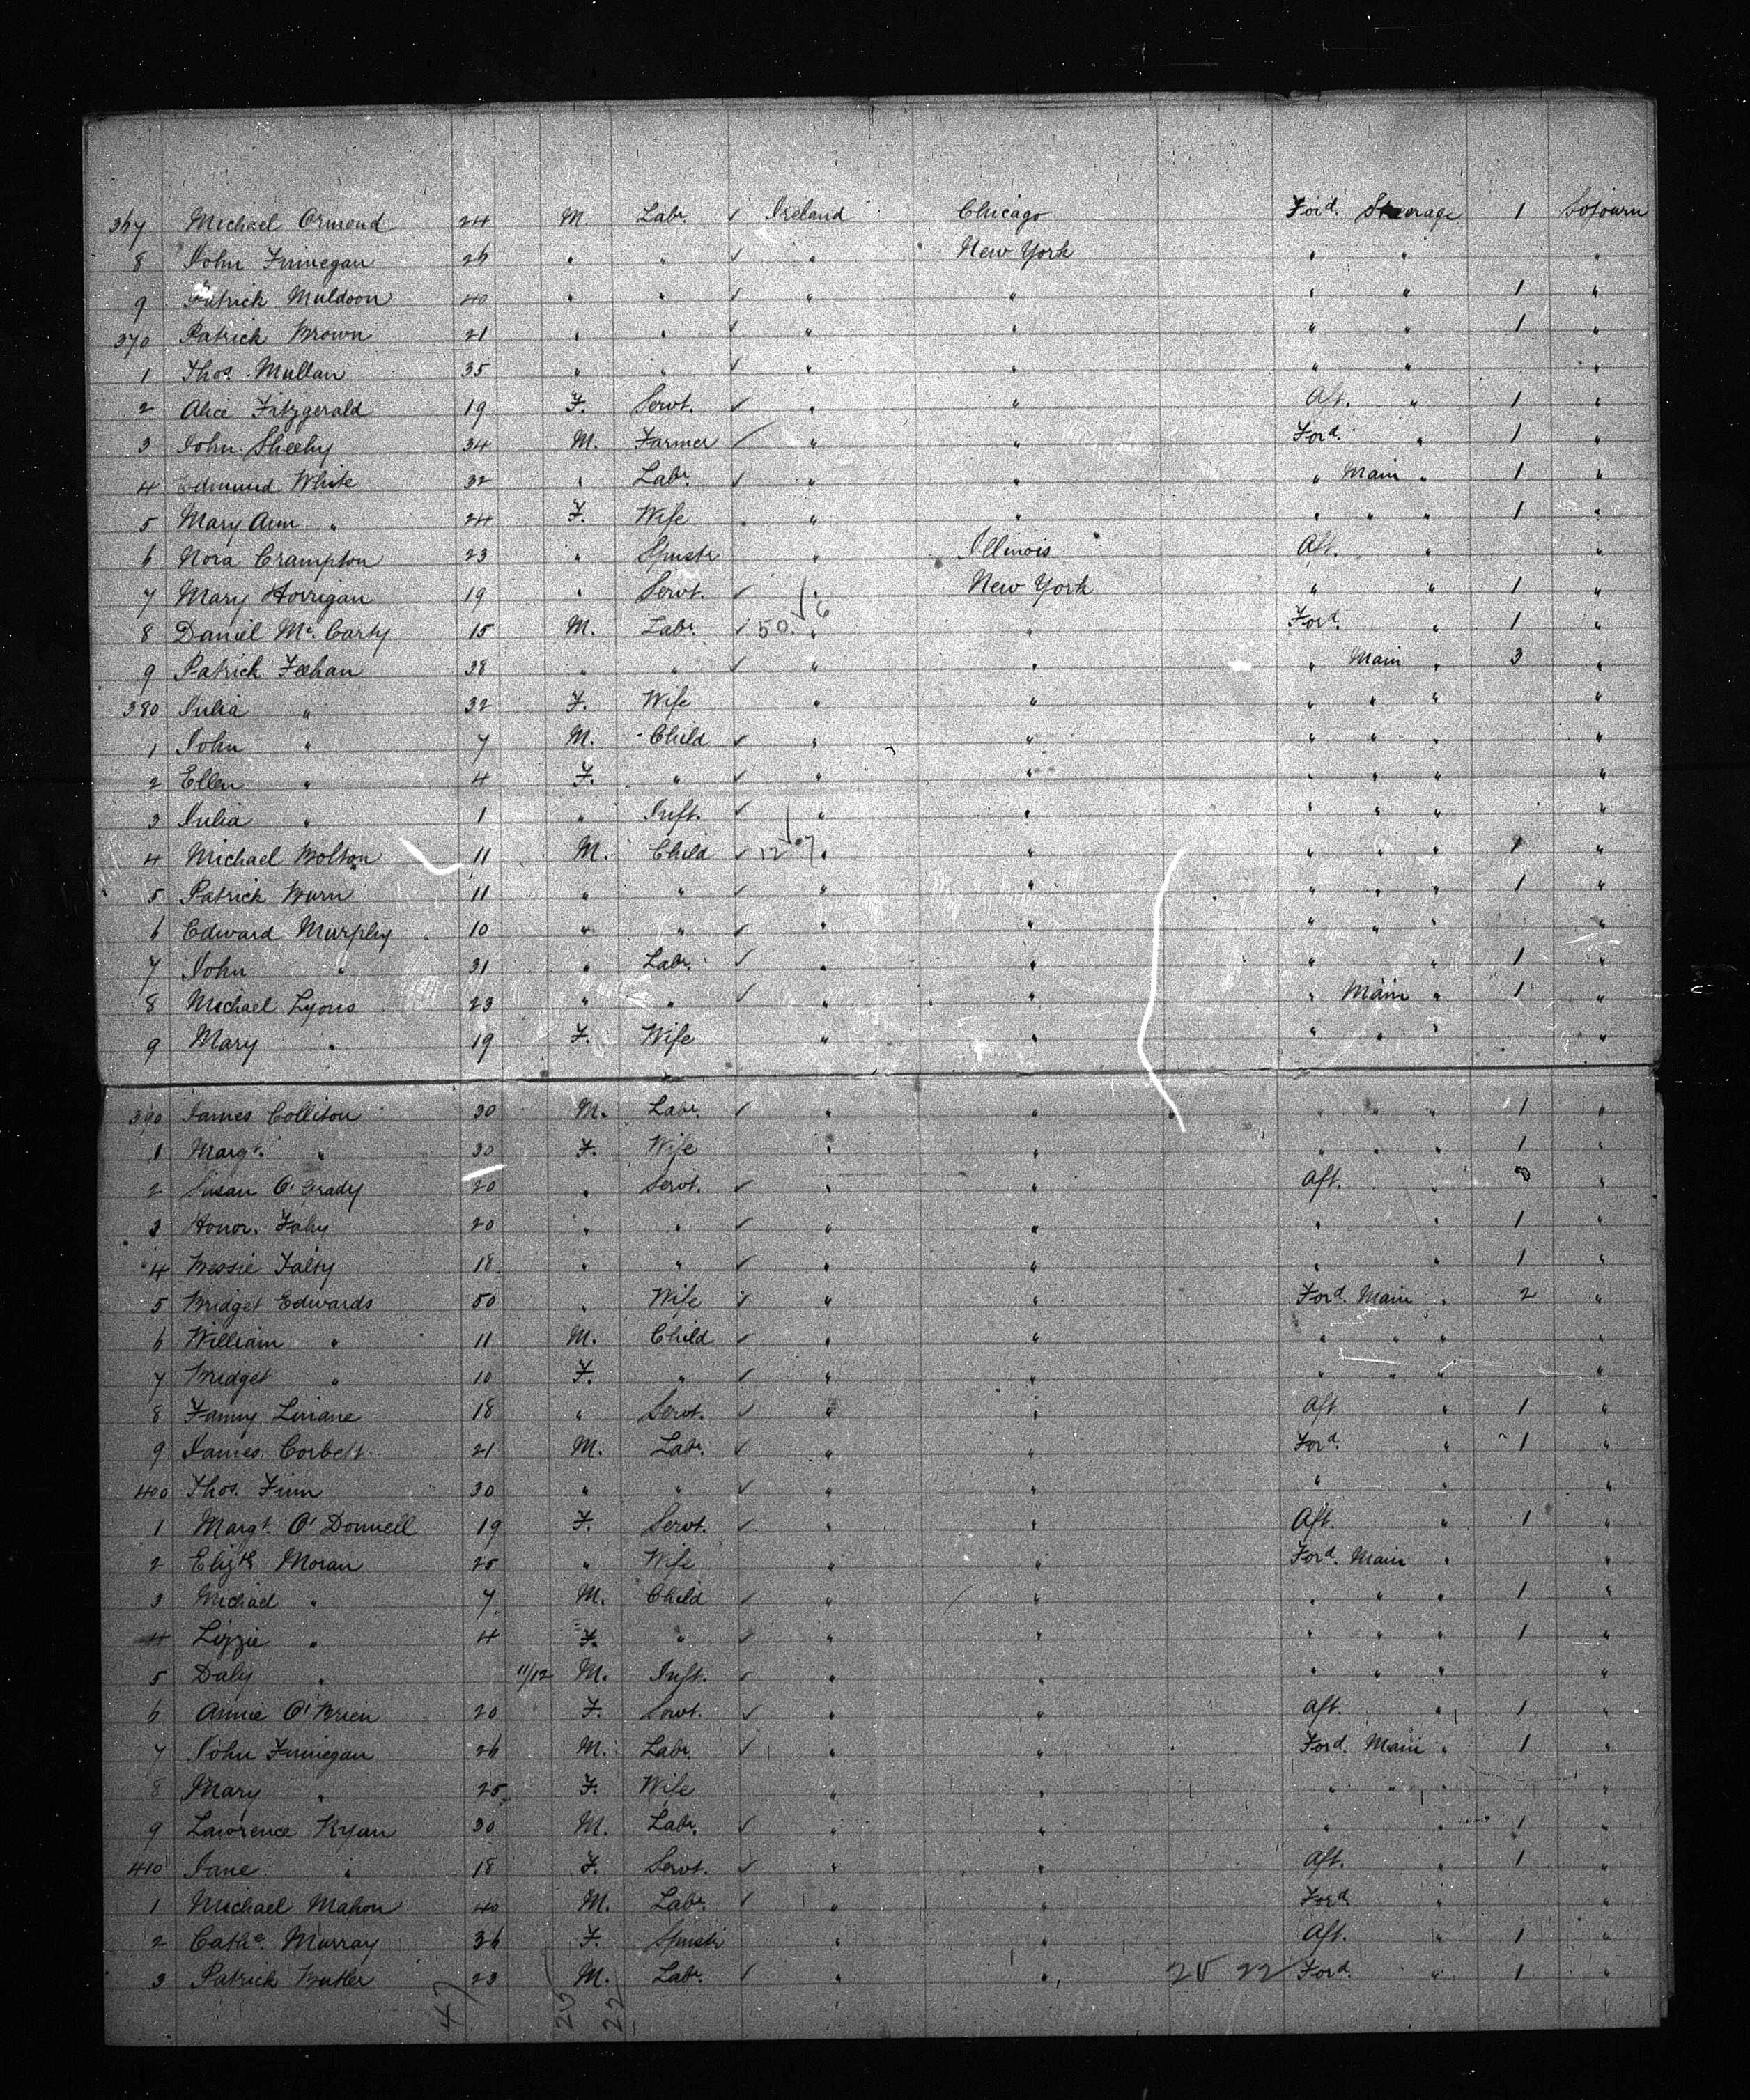 367 Michael Ormond 24 M. Labr. ✓ Ireland Chicago Ford. Steerage 1 Sojourn
8 John Finnegan 26 " " ✓ " New York " " "
9 Patrick Muldoon 40 " " ✓ " " " " 1 "
370 Patrick Brown 21 " " ✓ " " " " 1 "
1 Thos. Mullan 35 " " ✓ " " " " "
2 Alice Fitzgerald 19 F. Servt. ✓ " " Aft. " 1 "
3 John Sheehy 34 M. Farmer ✓ " " Ford. " 1 "
4 Edmund White 32 " Labr. ✓ " " " Main " 1 "
5 Mary Ann " 24 F. Wife " " " " " " 1 "
6 Nora Crampton 23 " Spinstr " Illinois Aft. " "
7 Mary Horrigan 19 " Servt. ✓ " New York " " 1 "
8 Daniel Mc. Carty 15 M. Labr. ✓ 50 ✓ 6 " " Ford. " 1 "
9 Patrick Feehan 38 " " ✓ " " " Main " 3 "
380 Julia " 32 F. Wife " " " " " "
1 John " 7 M. Child ✓ " " " " " "
2 Ellen " 4 F. " ✓ " " " " " "
3 Julia " 1 " Inft. ✓ " " " " " "
4 Michael Bolton 11 M. Child ✓ 12 ✓ 7 " " " " " 1 "
5 Patrick Burn 11 " " ✓ " " " " " 1 "
6 Edward Murphy 10 " " ✓ " " " " " "
7 John " 31 " Labr. ✓ " " " " 1 "
8 Michael Lyons 23 " " ✓ " " " Main " 1 "
9 Mary " 19 F. Wife " " " " " "
390 James Colliton 30 M. Labr. ✓ " " " " " 1 "
1 Margt. " 30 F. Wife " " " " " 1 "
2 Susan O'Grady 20 " Servt. ✓ " " Aft. " "
3 Honor. Fahy 20 " " ✓ " " " " 1 "
4 Bessie Falty 18 " " ✓ " " " " 1 "
5 Bridget Edwards 50 " Wife ✓ " " Ford. Main " 2 "
6 William " 11 M. Child ✓ " " " " " "
7 Bridget " 10 F. " ✓ " " " " " "
8 Fanny Linane 18 " Servt. ✓ " " Aft " 1 "
9 James Corbett 21 M. Labr. ✓ " " Ford. " 1 "
400 Thos. Finn 30 " " ✓ " " " " "
1 Margt. O'Donnell 19 F. Servt. ✓ " " Aft. " 1 "
2 Elizth Moran 25 " Wife " " Ford. Main " "
3 Michael " 7 M. Child ✓ " " " " " 1 "
4 Lizzie " 4 F. " ✓ " " " " " 1 "
5 Daly " 11/12 M. Inft. ✓ " " " " " "
6 Annie O'Brien 20 F. Servt. ✓ " " Aft. " 1 "
7 John Finnegan 26 M. Labr. ✓ " " Ford. Main " 1 "
8 Mary " 25 F. Wife " " " " "
9 Lawrence Ryan 30 M. Labr. ✓ " " " " 1 "
410 Jane " 18 F. Servt. ✓ " " Aft. " 1 "
1 Michael Mahon 40 M. Labr. ✓ " " Ford. " "
2 Cathe. Murray 36 F. Spinstr " " Aft. " 1 "
3 Patrick Butler 23 M. Labr. ✓ " " 25 22 Ford. " 1 "
47 25 22